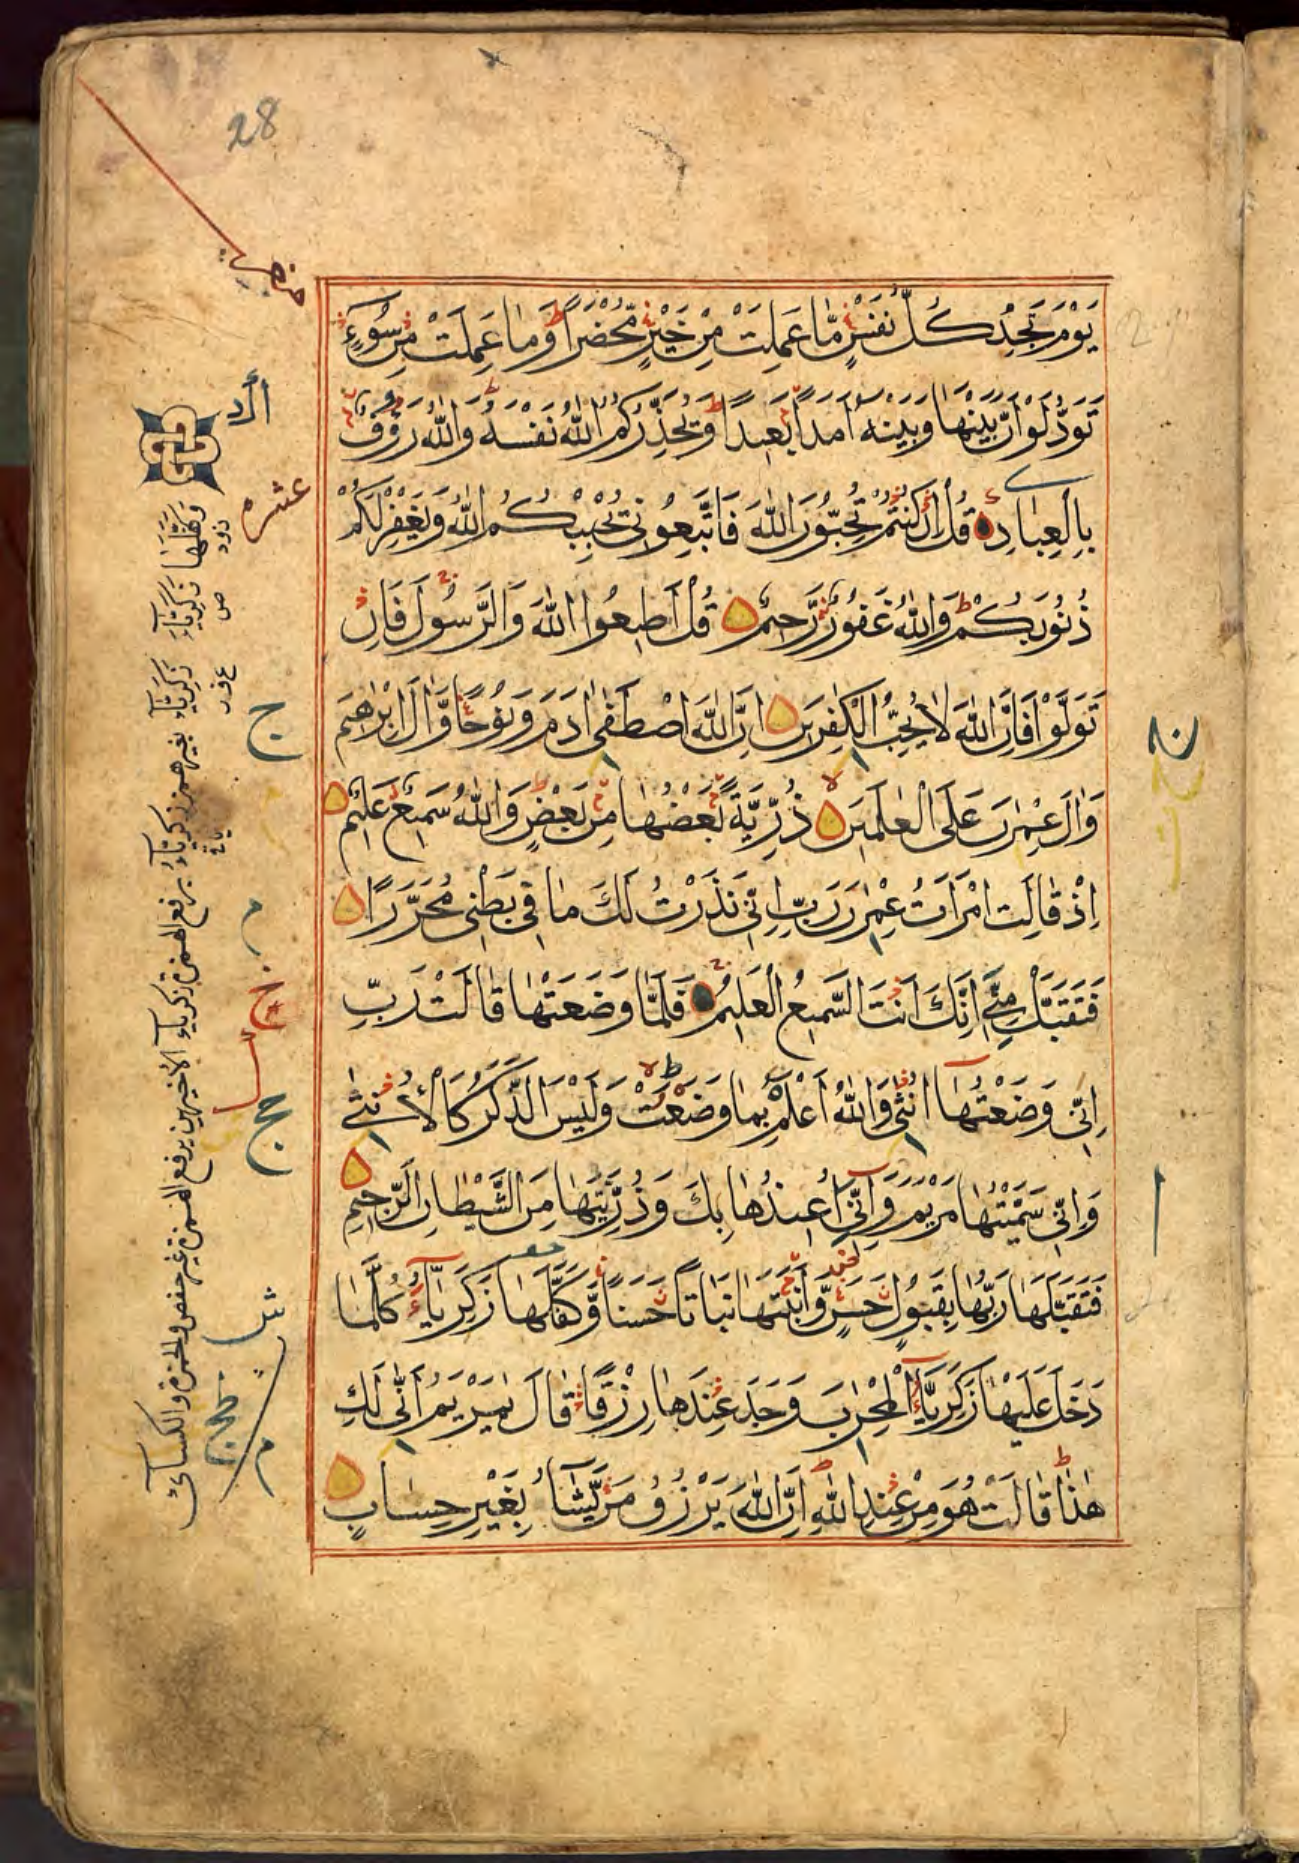 28
يَوْمَ تَجِدُ كُلُّ نَفْسٍ مَّا عَمِلَتْ مِنْ خَيْرٍ مُّحْضَرًا وَمَا عَمِلَتْ مِنْ سُوءٍ
تَوَدُّ لَوْ أَنَّ بَيْنَهَا وَبَيْنَهُ أَمَدًا بَعِيدًا وَيُحَذِّرُكُمُ اللَّهُ نَفْسَهُ وَاللَّهُ رَءُوفٌ
بِالْعِبَادِ قُلْ إِنْ كُنْتُمْ تُحِبُّونَ اللَّهَ فَاتَّبِعُونِي يُحْبِبْكُمُ اللَّهُ وَيَغْفِرْ لَكُمْ
ذُنُوبَكُمْ وَاللَّهُ غَفُورٌ رَّحِيمٌ قُلْ أَطِيعُوا اللَّهَ وَالرَّسُولَ فَإِنْ
تَوَلَّوْا فَإِنَّ اللَّهَ لَا يُحِبُّ الْكٰفِرِينَ إِنَّ اللَّهَ اصْطَفَى ادَمَ وَنُوحًا وَّالَ إِبْرٰهِيمَ
وَالَ عِمْرٰنَ عَلَى الْعٰلَمِينَ ذُرِّيَّةً بَعْضُهَا مِنْ بَعْضٍ وَاللَّهُ سَمِيعٌ عَلِيمٌ
إِذْ قَالَتِ امْرَأَتُ عِمْرٰنَ رَبِّ إِنِّي نَذَرْتُ لَكَ مَا فِي بَطْنِي مُحَرَّرًا
فَتَقَبَّلْ مِنِّي إِنَّكَ أَنْتَ السَّمِيعُ الْعَلِيمُ فَلَمَّا وَضَعَتْهَا قَالَتْ رَبِّ
إِنِّي وَضَعْتُهَا أُنْثٰى وَاللَّهُ أَعْلَمُ بِمَا وَضَعَتْ وَلَيْسَ الذَّكَرُ كَالْأُنْثٰى
وَإِنِّي سَمَّيْتُهَا مَرْيَمَ وَإِنِّي أُعِيذُهَا بِكَ وَذُرِّيَّتَهَا مِنَ الشَّيْطَانِ الرَّجِيمِ
فَتَقَبَّلَهَا رَبُّهَا بِقَبُولٍ حَسَنٍ وَّأَنْبَتَهَا نَبَاتًا حَسَنًا وَّكَفَّلَهَا زَكَرِيَّاءُ كُلَّمَا
دَخَلَ عَلَيْهَا زَكَرِيَّاءُ الْمِحْرٰبَ وَجَدَ عِنْدَهَا رِزْقًا قَالَ يٰمَرْيَمُ أَنّٰى لَكِ
هٰذَا قَالَتْ هُوَ مِنْ عِنْدِ اللَّهِ إِنَّ اللَّهَ يَرْزُقُ مَنْ يَّشَاءُ بِغَيْرِ حِسَابٍ
عشره
وَكَفَّلَهَا زكرياء زكرياء بغير همز زكرياء برفع الهمزة زكرياء الأخيرين برفع الهمزة غير حفص وحمزة والكسائي